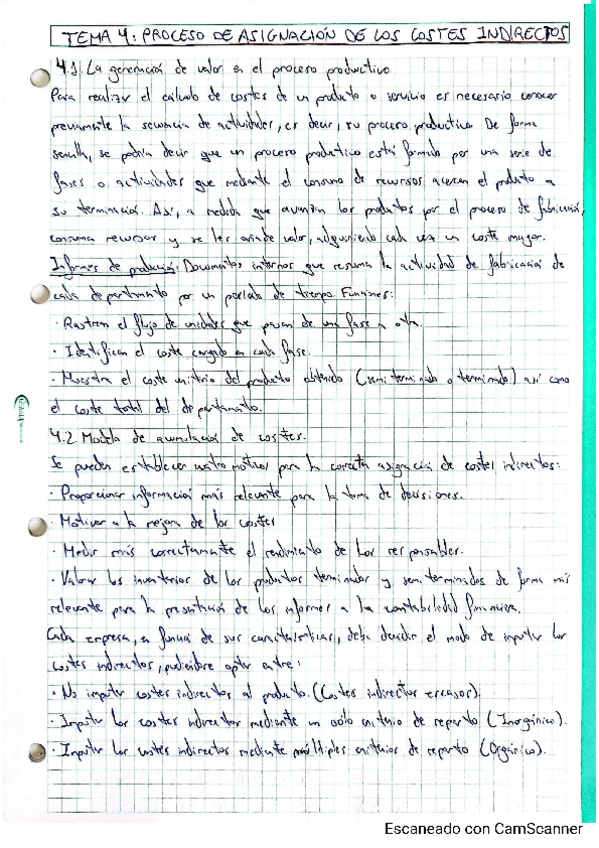 TEMA 4: PROCESO DE ASIGNACIÓN DE LOS COSTES INDIRECTOS
4.1. La generación de valor en el proceso productivo
Para realizar el cálculo de costes de un producto o servicio es necesario conocer
previamente la secuencia de actividades, es decir, su proceso productivo. De forma
sencilla, se podría decir que un proceso productivo está formado por una serie de
fases o actividades que mediante el consumo de recursos acercan el producto a
su terminación. Así, a medida que avanzan los productos por el proceso de fabricación,
consume recursos y se les añade valor, adquiriendo cada vez un coste mayor.
Informes de producción: Documentos internos que resumen la actividad de fabricación de
cada departamento por un periodo de tiempo. Funciones:
· Rastrean el flujo de unidades que pasan de una fase a otra.
· Identifican el coste cargado en cada fase.
· Muestra el coste unitario del producto obtenido (semiterminado o terminado) así como
el coste total del departamento.
4.2. Modelo de acumulación de costes.
Se pueden establecer cuatro motivos para la correcta asignación de costes indirectos:
· Proporcionar información más relevante para la toma de decisiones.
· Motivar a la mejora de los costes
· Medir más correctamente el rendimiento de los responsables.
· Valorar los inventarios de los productos terminados y semiterminados de forma más
relevante para la presentación de los informes a la contabilidad financiera.
Cada empresa, en función de sus características, debe decidir el modo de imputar los
costes indirectos, pudiendo optar entre:
· No imputar costes indirectos al producto. (Costes indirectos escasos).
· Imputar los costes indirectos mediante un solo criterio de reparto (Inorgánico).
· Imputar los costes indirectos mediante múltiples criterios de reparto (Orgánico).
Escaneado con CamScanner